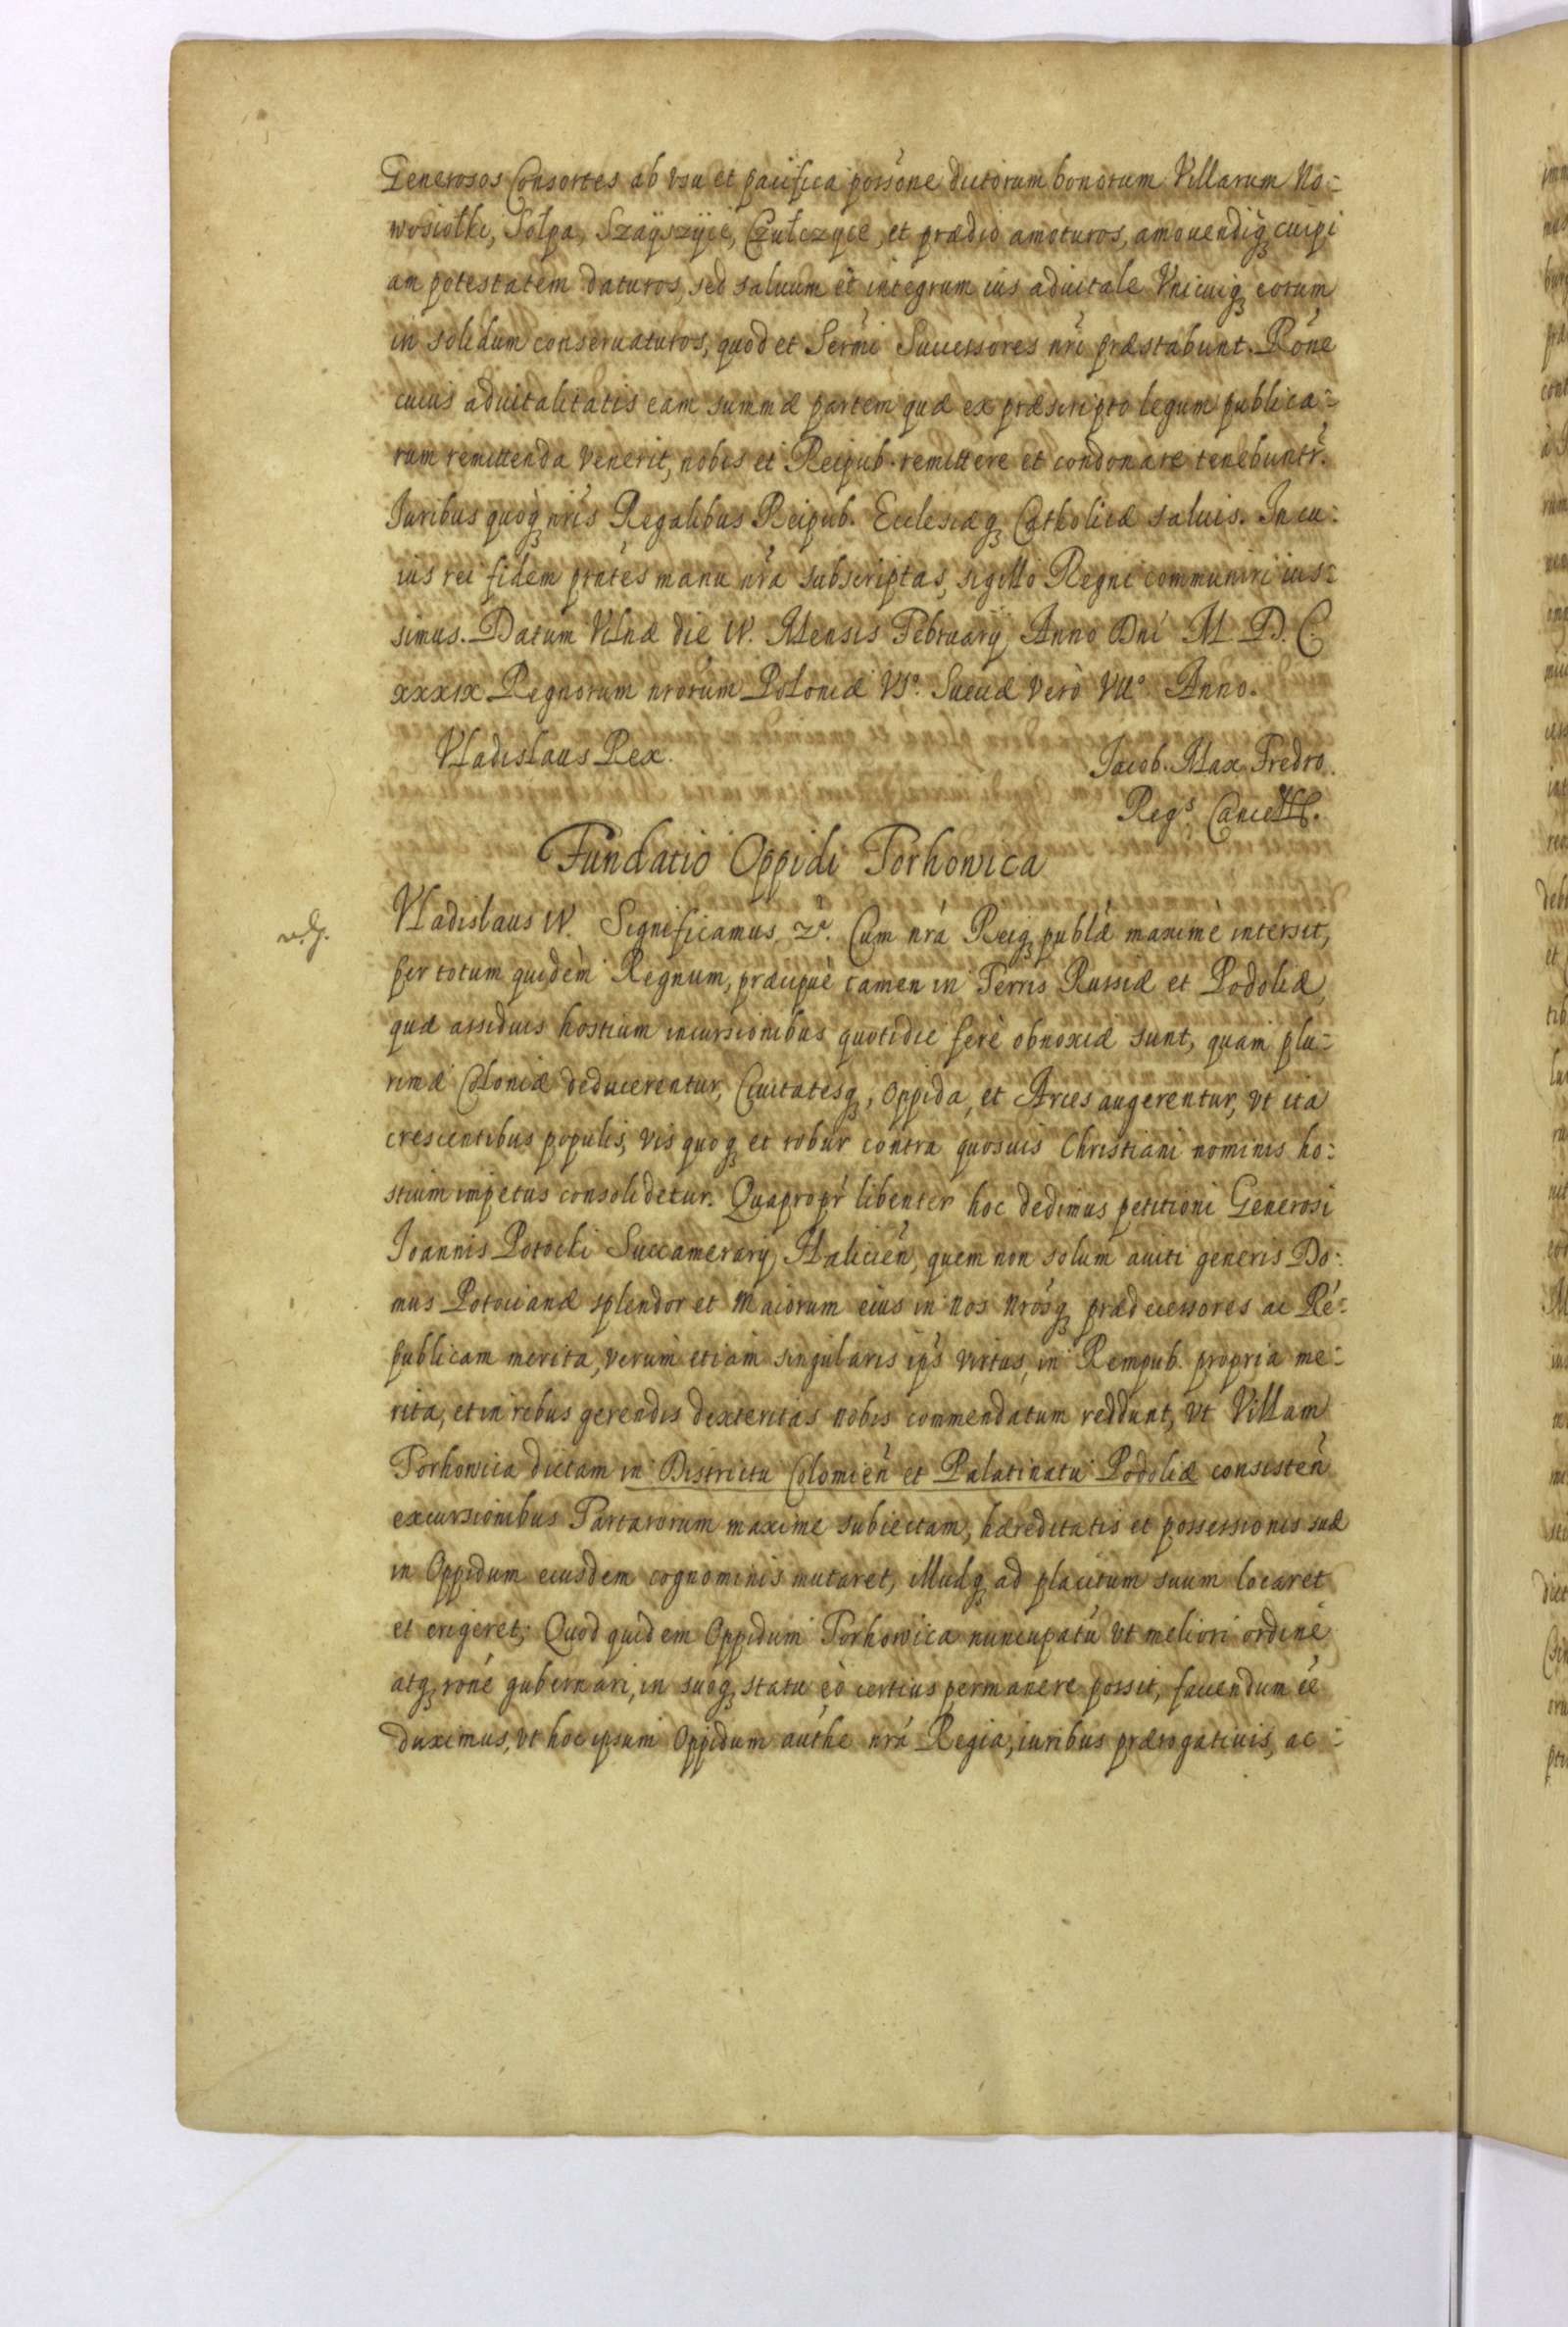 Generosos Consortes ab vsu et pacifica possone dictorum bonorum Villarum No=
wosiołki, Sołpa, Szaÿszÿce, Czułczyce, et prædio amoturos, amouendiq; cuipi
am potestatem daturos, sed saluum et integrum ius aduitale Vnicuiq; eorum
in solidum conseruaturos, quod et Sermi Successores nri præstabunt. Rone
cuius aduitalitatis eam summæ partem quæ ex præscripto legum publica=
rum remittenda venerit, nobis et Reipub. remittere et condonare tenebuntr.
Iuribus quoq; nris Regalibus Reipub. Ecclesiæq; Catholicæ saluis. In cu:
ius rei fidem pntes manu nra subscriptas, sigillo Regni communiri ius=
simus. Datum Vilnæ die IV. Mensis February Anno Dni M. D. C.
xxxix Regnorum nrorum Poloniæ VIº. Sueciæ verò VIIº. Anno.
Vladislaus Rex.
Jacob. Max Fredro.
Regs Cancell.
Fundatio Oppidi Torhowica
Vladislaus IV. Significamus, Cum nrá Reiq; publæ maximè intersit,
per totum quidem Regnum, præcipuè tamen in Terris Russiæ et Podoliæ
quæ assiduis hostium incursionibus quotidie ferè obnoxiæ sunt, quam plu=
rimæ Coloniæ deducerentur, Ciuitatesq;, Oppida, et Arces augerentur, vt ita
crescentibus populis, vis quoq; et robur contra quosuis Christiani nominis ho:
stium impetus consolidetur. Quapropr libenter hoc dedimus petitioni Generosi
Joannis Potocki Succamerary Halicien, quem non solum auiti generis Do:
mus Potocianæ splendor et Maiorum eius in Nos Nrosq; prædecessores ac Ré=
publicam merita, verum etiam singularis ips virtus, in Rempub. propria me=
rita, et in rebus gerendis dexteritas nobis commendatum reddunt, vt Villam
Torhowica dictam in Districtu Colomien et Palatinatu Podoliæ consisten
excursionibus Tartarorum maxime subiectam, hæreditatis et possessionis suæ
in Oppidum eiusdem cognominis mutaret, illudq; ad placitum suum locaret
et erigeret; Quod quidem Oppidum Torhowica nuncupatu vt meliori ordine
atq; rone gubernari, in suoq; statu eò certius permanere possit, fauendum eé
duximus, vt hoc ipsum Oppidum authe nrá Regia, iuribus prærogatiuis, ac =